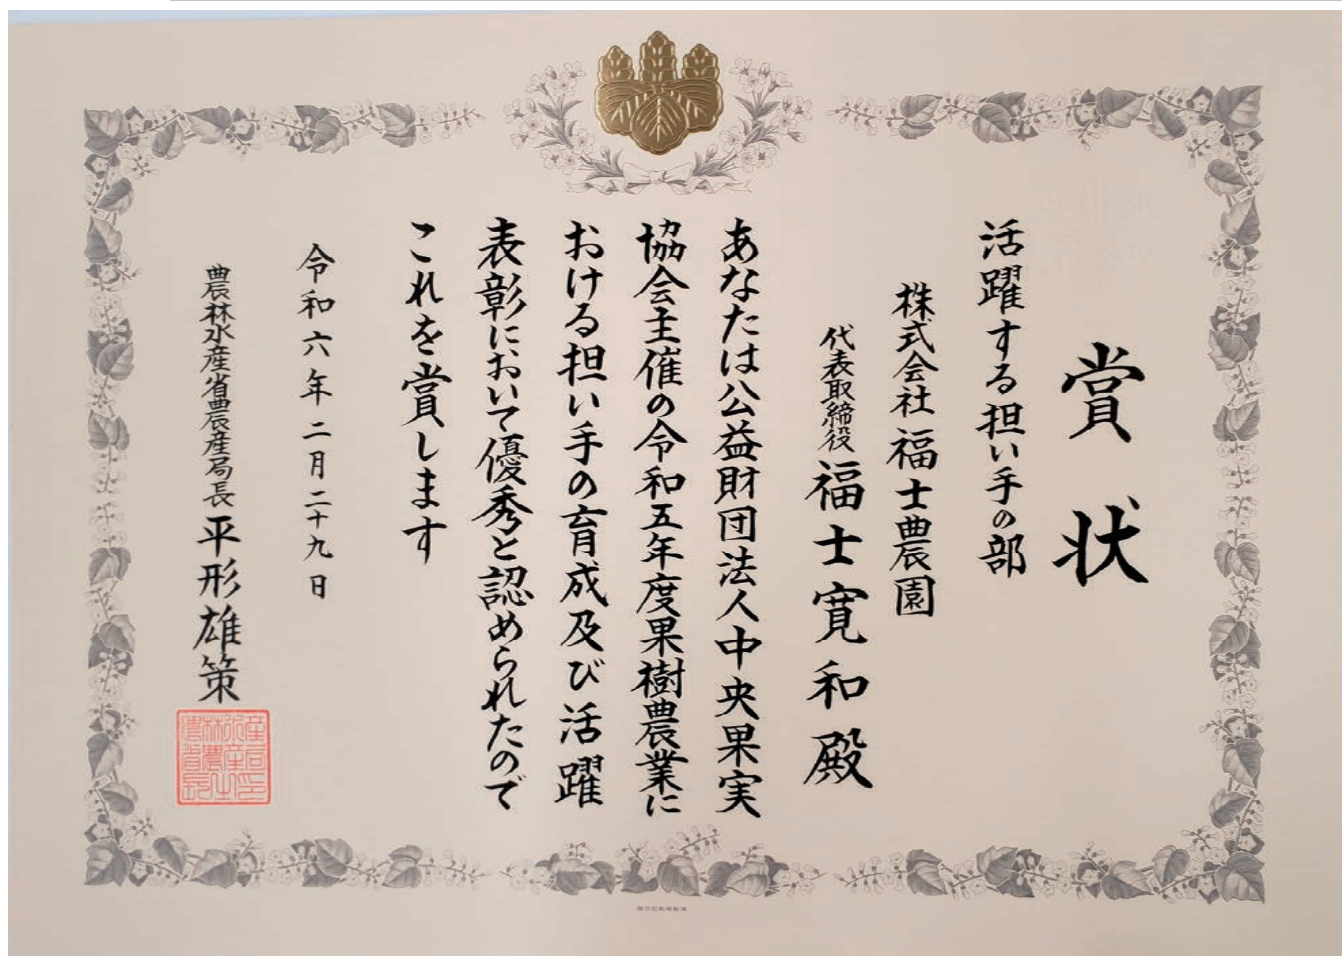 賞状
活躍する担い手の部
株式会社 福士農園
代表取締役 福士寛和殿
あなたは公益財団法人中央果実
協会主催の令和五年度果樹農業に
おける担い手の育成及び活躍
表彰において優秀と認められたので
これを賞します
令和六年二月二十九日
農林水産省農産局長 平形雄策